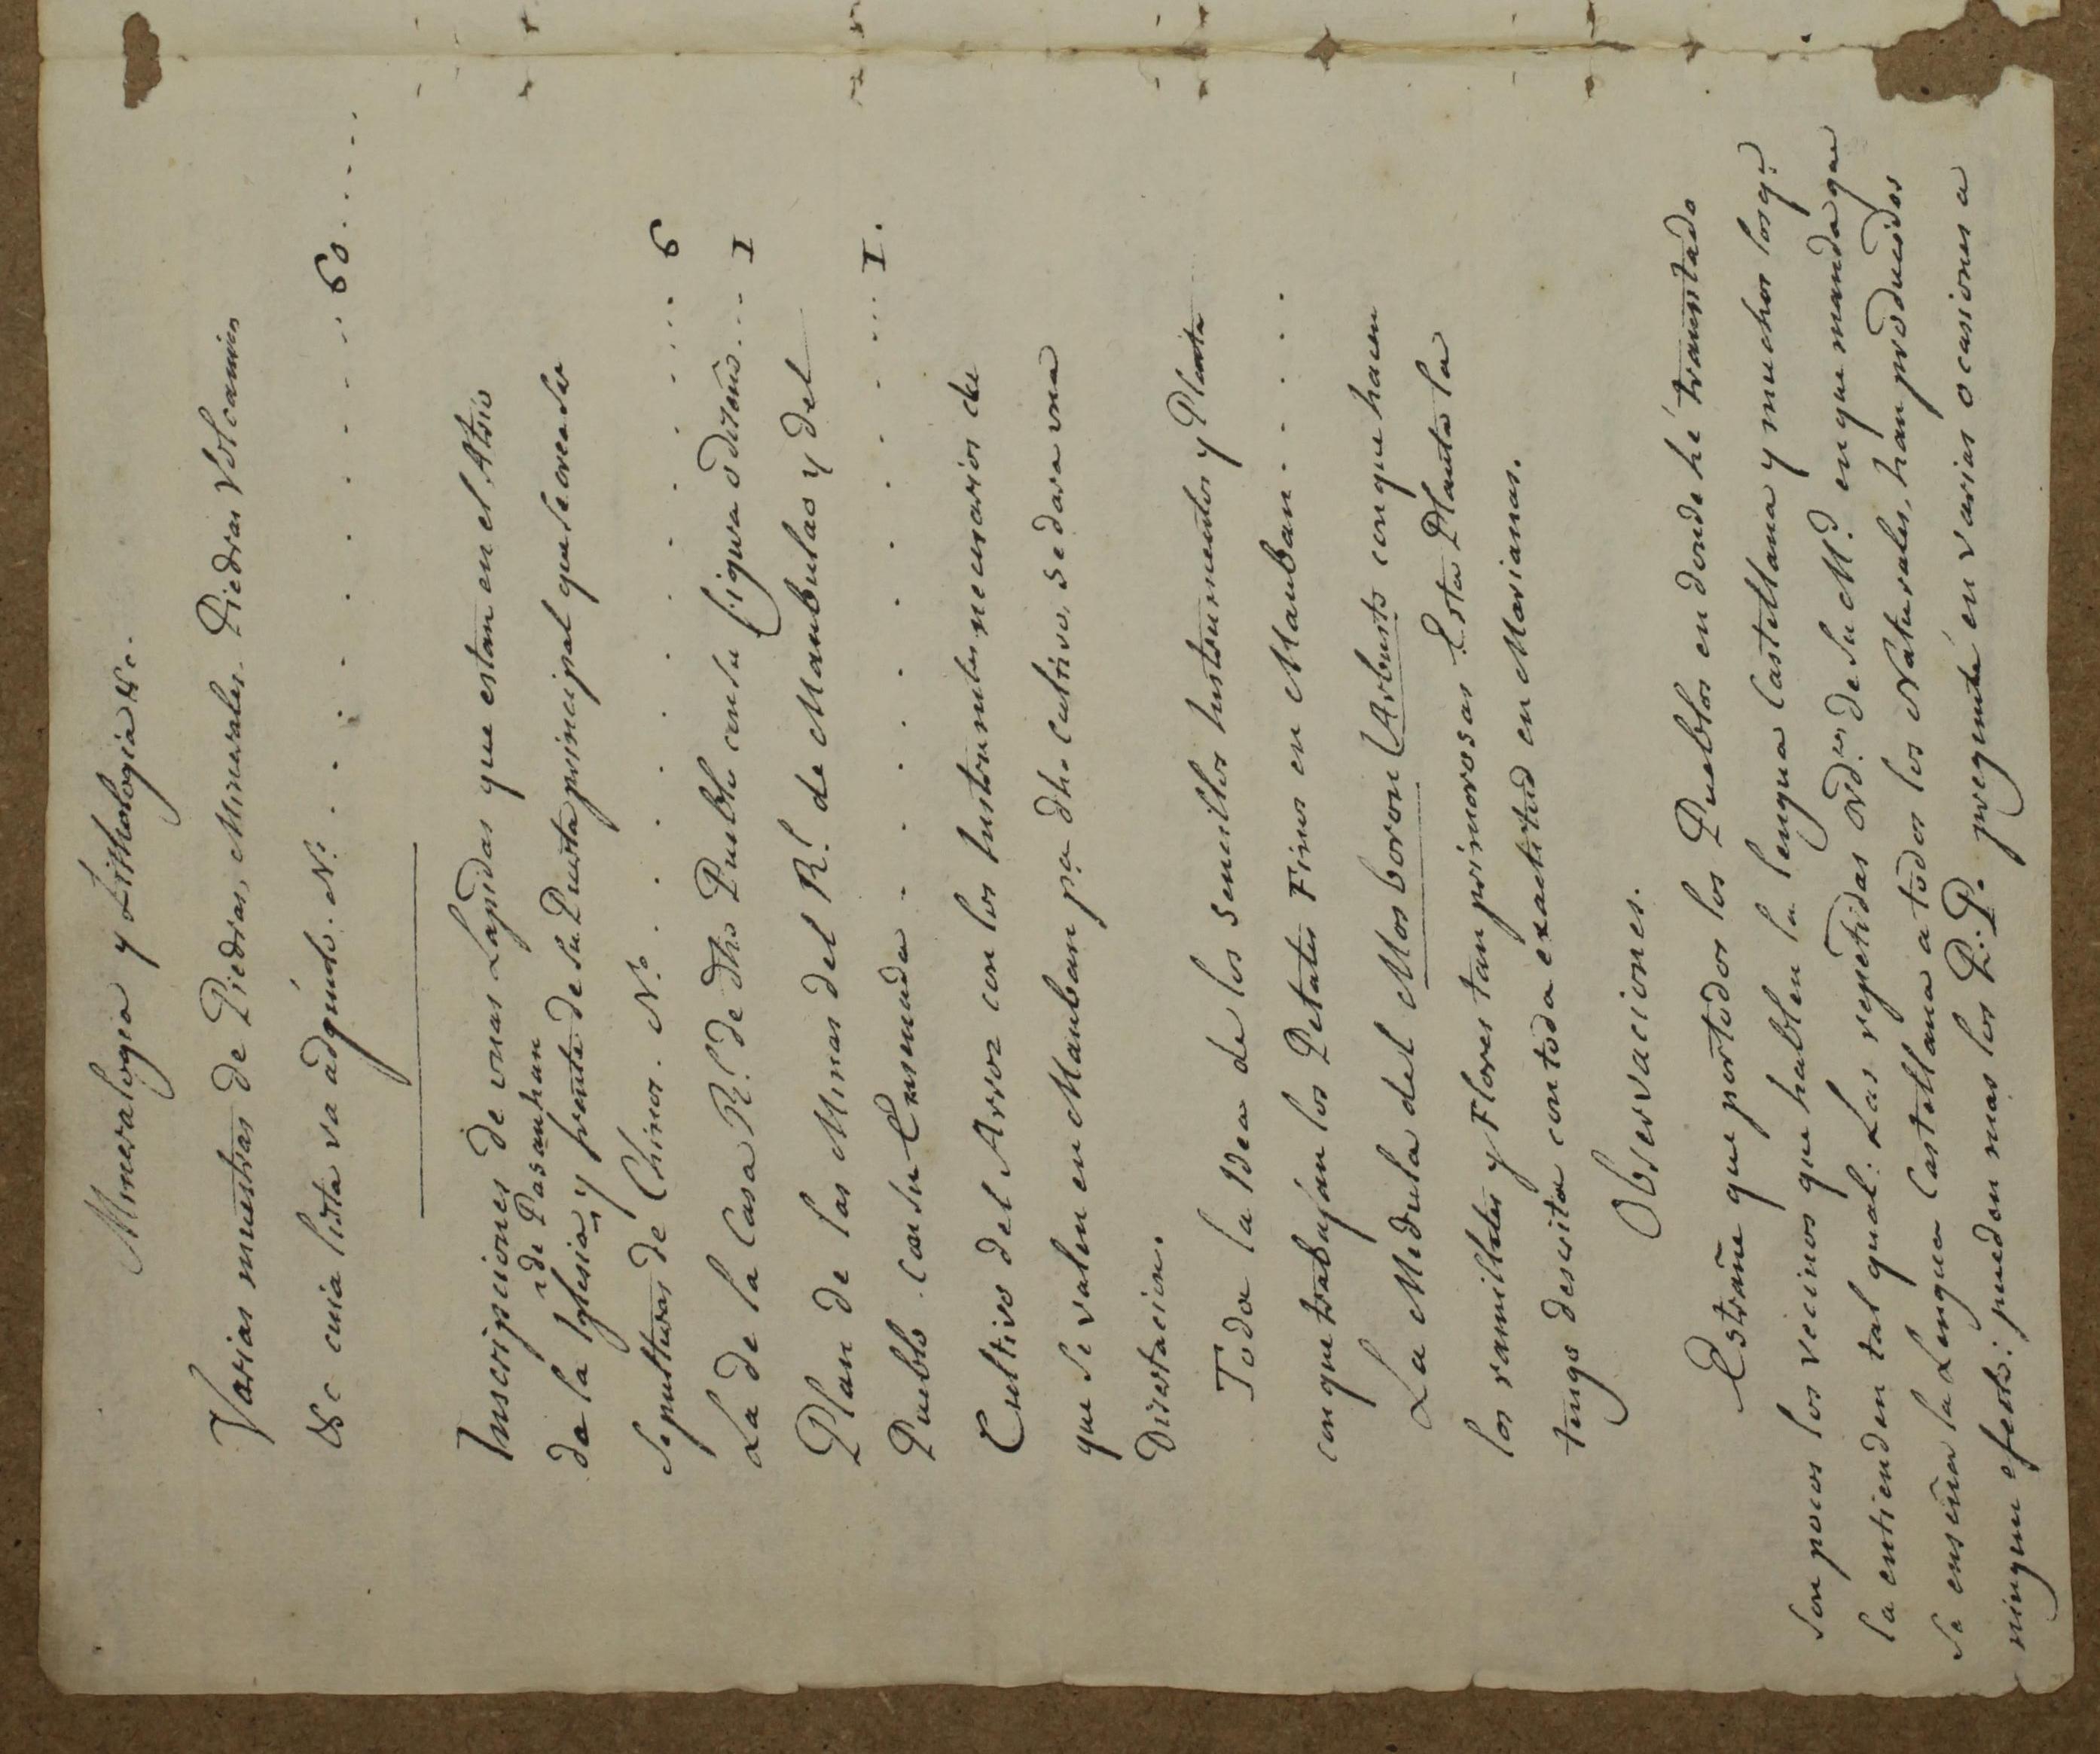 Mineralogia y Lithologia &c.
Varias muestras de Piedras, Minerales, Piedras Volcanicas
&c cuia lista va adjunto. N.º . . . . . . . . . 60 . . . .
Inscripciones de unas Lapidas que estan en el Atrio
de Pasanhan
de la Iglesia y frente de su Puerta principal que se cree ser
sepulturas de Chinos. N.º . . . . . . . . . 6
La de la Casa R.l de dho Pueblo con su Figura . . . 1
Plan de las Minas del R.l de Mambulao y del
Pueblo con su Ensenada . . . . . . . . . 1.
Cultivo del Arroz con los Instrumentos necesarios de
que se valen en Mauban p.a dho cultivo, se dara una
Disertacion.
Toda la Idea de los sencillos Instrumentos y Planta
con que trabajan los Petates Finos en Mauban . . . . .
La Medula del Mosboron (Arbusto con que hacen
los ramilletes y Flores tan primorosas Esta Planta la
tengo descrita con toda exactitud en Marianas.
Observaciones.
Estrañe que por todos los Pueblos en donde hé transitado
son pocos los vecinos que hablen la lengua Castellana y muchos los q.e
la entienden tal qual: Las repetidas ord.nes de su M.d en que manda que
se enseña la Lengua Castellana a todos los Naturales, han producido
ningun efecto: pueden mas los P.P. pregunté en varias ocasiones a